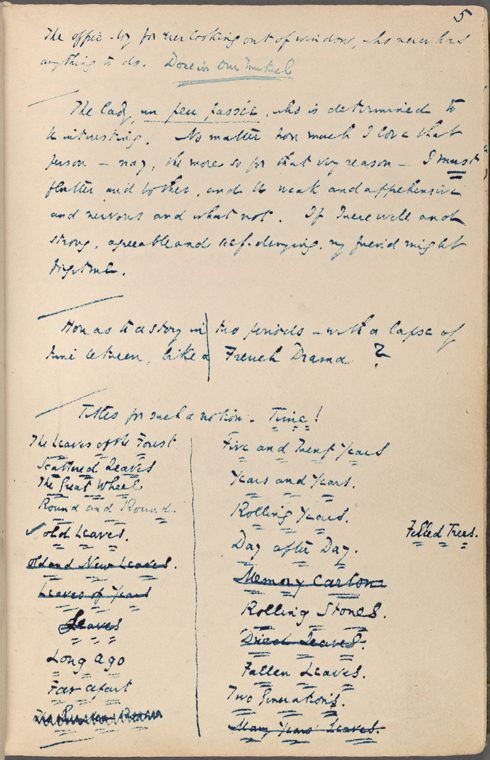 5
The office boy for ever looking out of window, who never has
anything to do. Done in Our Mutual
The lady, un peu passée, who is determined to
be interesting. No matter how much I love that
person – nay, the more so for that very reason – I must
flutter and bother, and be weak and apprehensive
and nervous and what not. If I were well and
strong, agreeable and self-denying, my friend might
forget me.
How as to a story in two periods – with a lapse of
time between, like a French Drama?
Titles for such a notion. Time!
The Leaves of the Forest
Scattered Leaves
The Great Wheel
Round and Round.
Old Leaves.
Old and New Leaves.
Leaves of Years
Leaves
Long ago
Far apart
Five and Twenty Years
Years and Years.
Rolling Years.
Day after Day.
Memory Carton
Rolling Stones.
Dried Leaves.
Fallen Leaves.
Two Generations.
Many Years' Leaves.
Felled Trees.